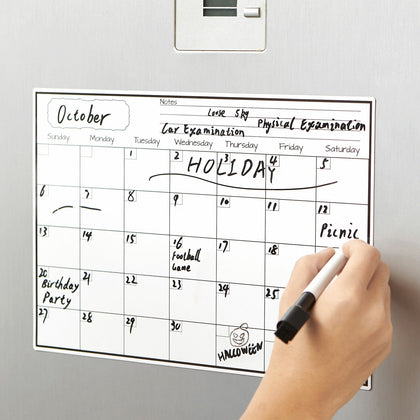 October
Notes
Lose Sky
Car Examination Physical Examination
Sunday Monday Tuesday Wednesday Thursday Friday Saturday
1 2 3 4 5
HOLIDAY
6 7 8 9 10 11 12
Picnic
13 14 15 16 17 18
Football
Game
20 21 22 23 24 25
Birthday
Party
27 28 29 30
HALLOWEEN